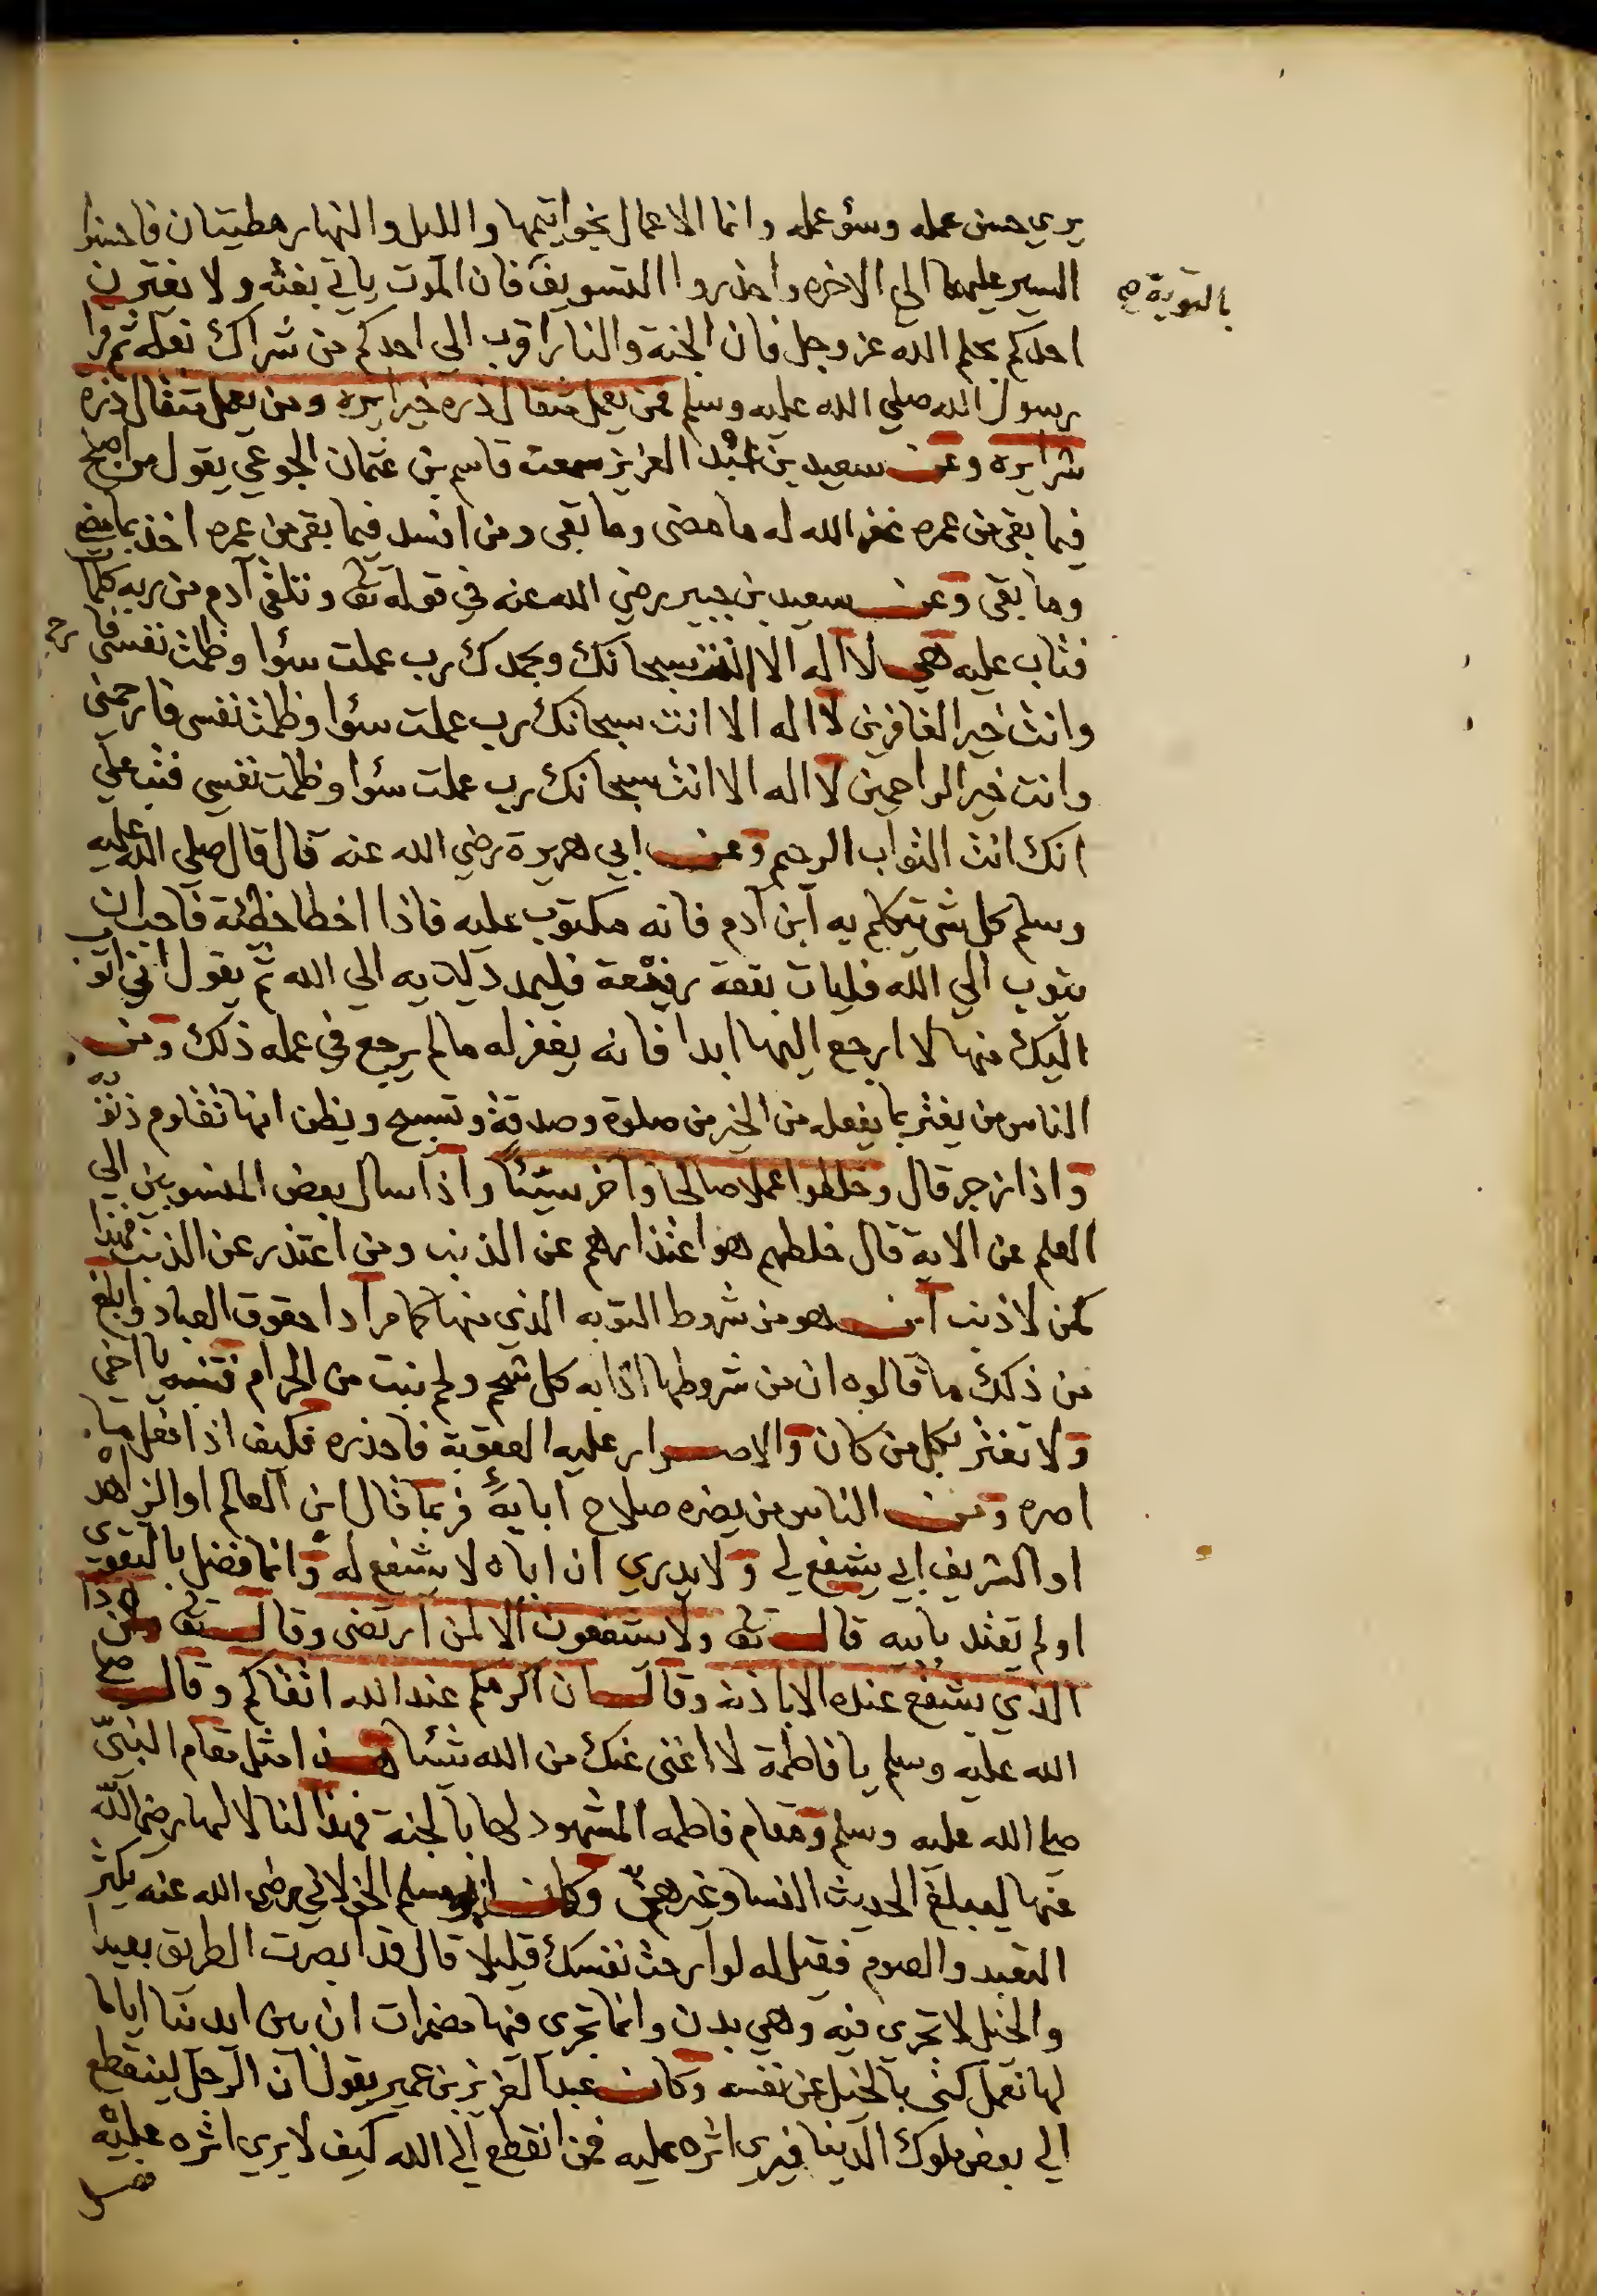 يري حسن عمله وسؤ عمله وانما الاعمال بخواتيمها والليل والنهار مطيتان فاحسنوا
السير عليهما الي الاخره واحذروا التسويف فان الموت ياتي بغتة ولا يغترن
بالتوبة صح
احدكم بحلم الله عز وجل فان الجنة والنار اقرب الي احدكم من شراك نعله ثم قرا
رسول الله صلي الله عليه وسلم فمن يعمل مثقال ذره خيرا يره ومن يعمل مثقال ذرة
شرا يره وعن سعيد بن عبد العزيز سمعت قاسم بن عثمان الجوعي يقول من اصلح
فيما بقي من عمره غفر الله له ما مضى وما بقى ومن افسد فيما بقي من عمره اخذ بما مضى
وما بقى وعن سعيد بن جبير رضي الله عنه في قوله تعا وتلقى آدم من ربه كلمات
فتاب عليه هي لا اله الا انت سبحانك وبحمدك رب عملت سؤا وظلمت نفسي فا
وانت خير الغافرين لا اله الا انت سبحانك رب عملت سؤا وظلمت نفسي فارحمني
وانت خير الراحمين لا اله الا انت سبحانك رب عملت سؤا وظلمت نفسي فتب علي
انك انت التواب الرحيم وعن ابي هريرة رضي الله عنه قال قال صلي الله عليه
وسلم كل شي يتكلم به ابن آدم فانه مكتوب عليه فاذا اخطا خطئة فاحب ان
يتوب الي الله فليات بقعة رفيعة فليمد يديه الي الله ثم يقول اني اتوب
اليك منها لا ارجع اليها ابدا فانه يغفر له مالم يرجع في عمله ذلك ومن
الناس من يغتر بما يفعله من الخير من صلوة وصدقة وتسبيح ويظن انها تقاوم ذنوبه
واذا زجر قال وخلطوا عملا صالحا وآخر سيئا واذا سال بعض المنسوبين الي
العلم عن الاية قال خلطهم هو اعتذارهم عن الذنب ومن اعتذر عن الذنب فهذا
كمن لا ذنب هو من شروط التوبه الذي منها كما مر ادا حقوق العباد وابلغ
من ذلك ما قالوه ان من شروطها اذابه كل شحم ولحم نبت من الحرام فتنبه يا اخي
ولا تغتر بكل من كان والاصرار عليه العقوبة فاحذره فكيف اذا فعل
اصره ومن الناس من يضره صلاح آبايه فربما قال ابن العالم او الزاهد
او الشريف ابي يشفع لي ولا يدري ان اباه لا يشفع له وانما فضل بالتقوى
او لم يقتد بابيه قال تعا ولا يشفعون الا لمن ارتضى وقال تعا من ذا
الذي يشفع عنده الا باذنه وقال ان اكرمكم عند الله اتقاكم وقال صلي
الله عليه وسلم يا فاطمة لا اغني عنك من الله شيئا هذا مثل مقام النبي
صلي الله عليه وسلم ومقام فاطمه المشهود لها بالجنة فهذا لنا لا لها رضي الله
عنها ليبلغ الحديث النسا وغيرهن وكان ابو مسلم الخولاني رضي الله عنه يكثر
التعبد والصوم فقيل له لو ارحت نفسك قليلا قال قد ابصرت الطريق بعيدا
والخيل لا تجري فيه وهي بدن وانما تجري فيها مضمرات ان بين ايدينا اياما
لها نعمل كنى بالخيل عن نفسه وكان عبد العزيز بن عمير يقول ان الرجل لينقطع
الي بعض ملوك الدنيا فيري اثره عليه فمن انقطع الي الله كيف لا يري اثره عليه
فصل